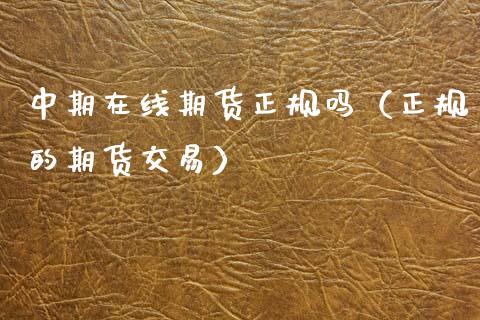 中期在线期货正规吗（正规
的期货交易）